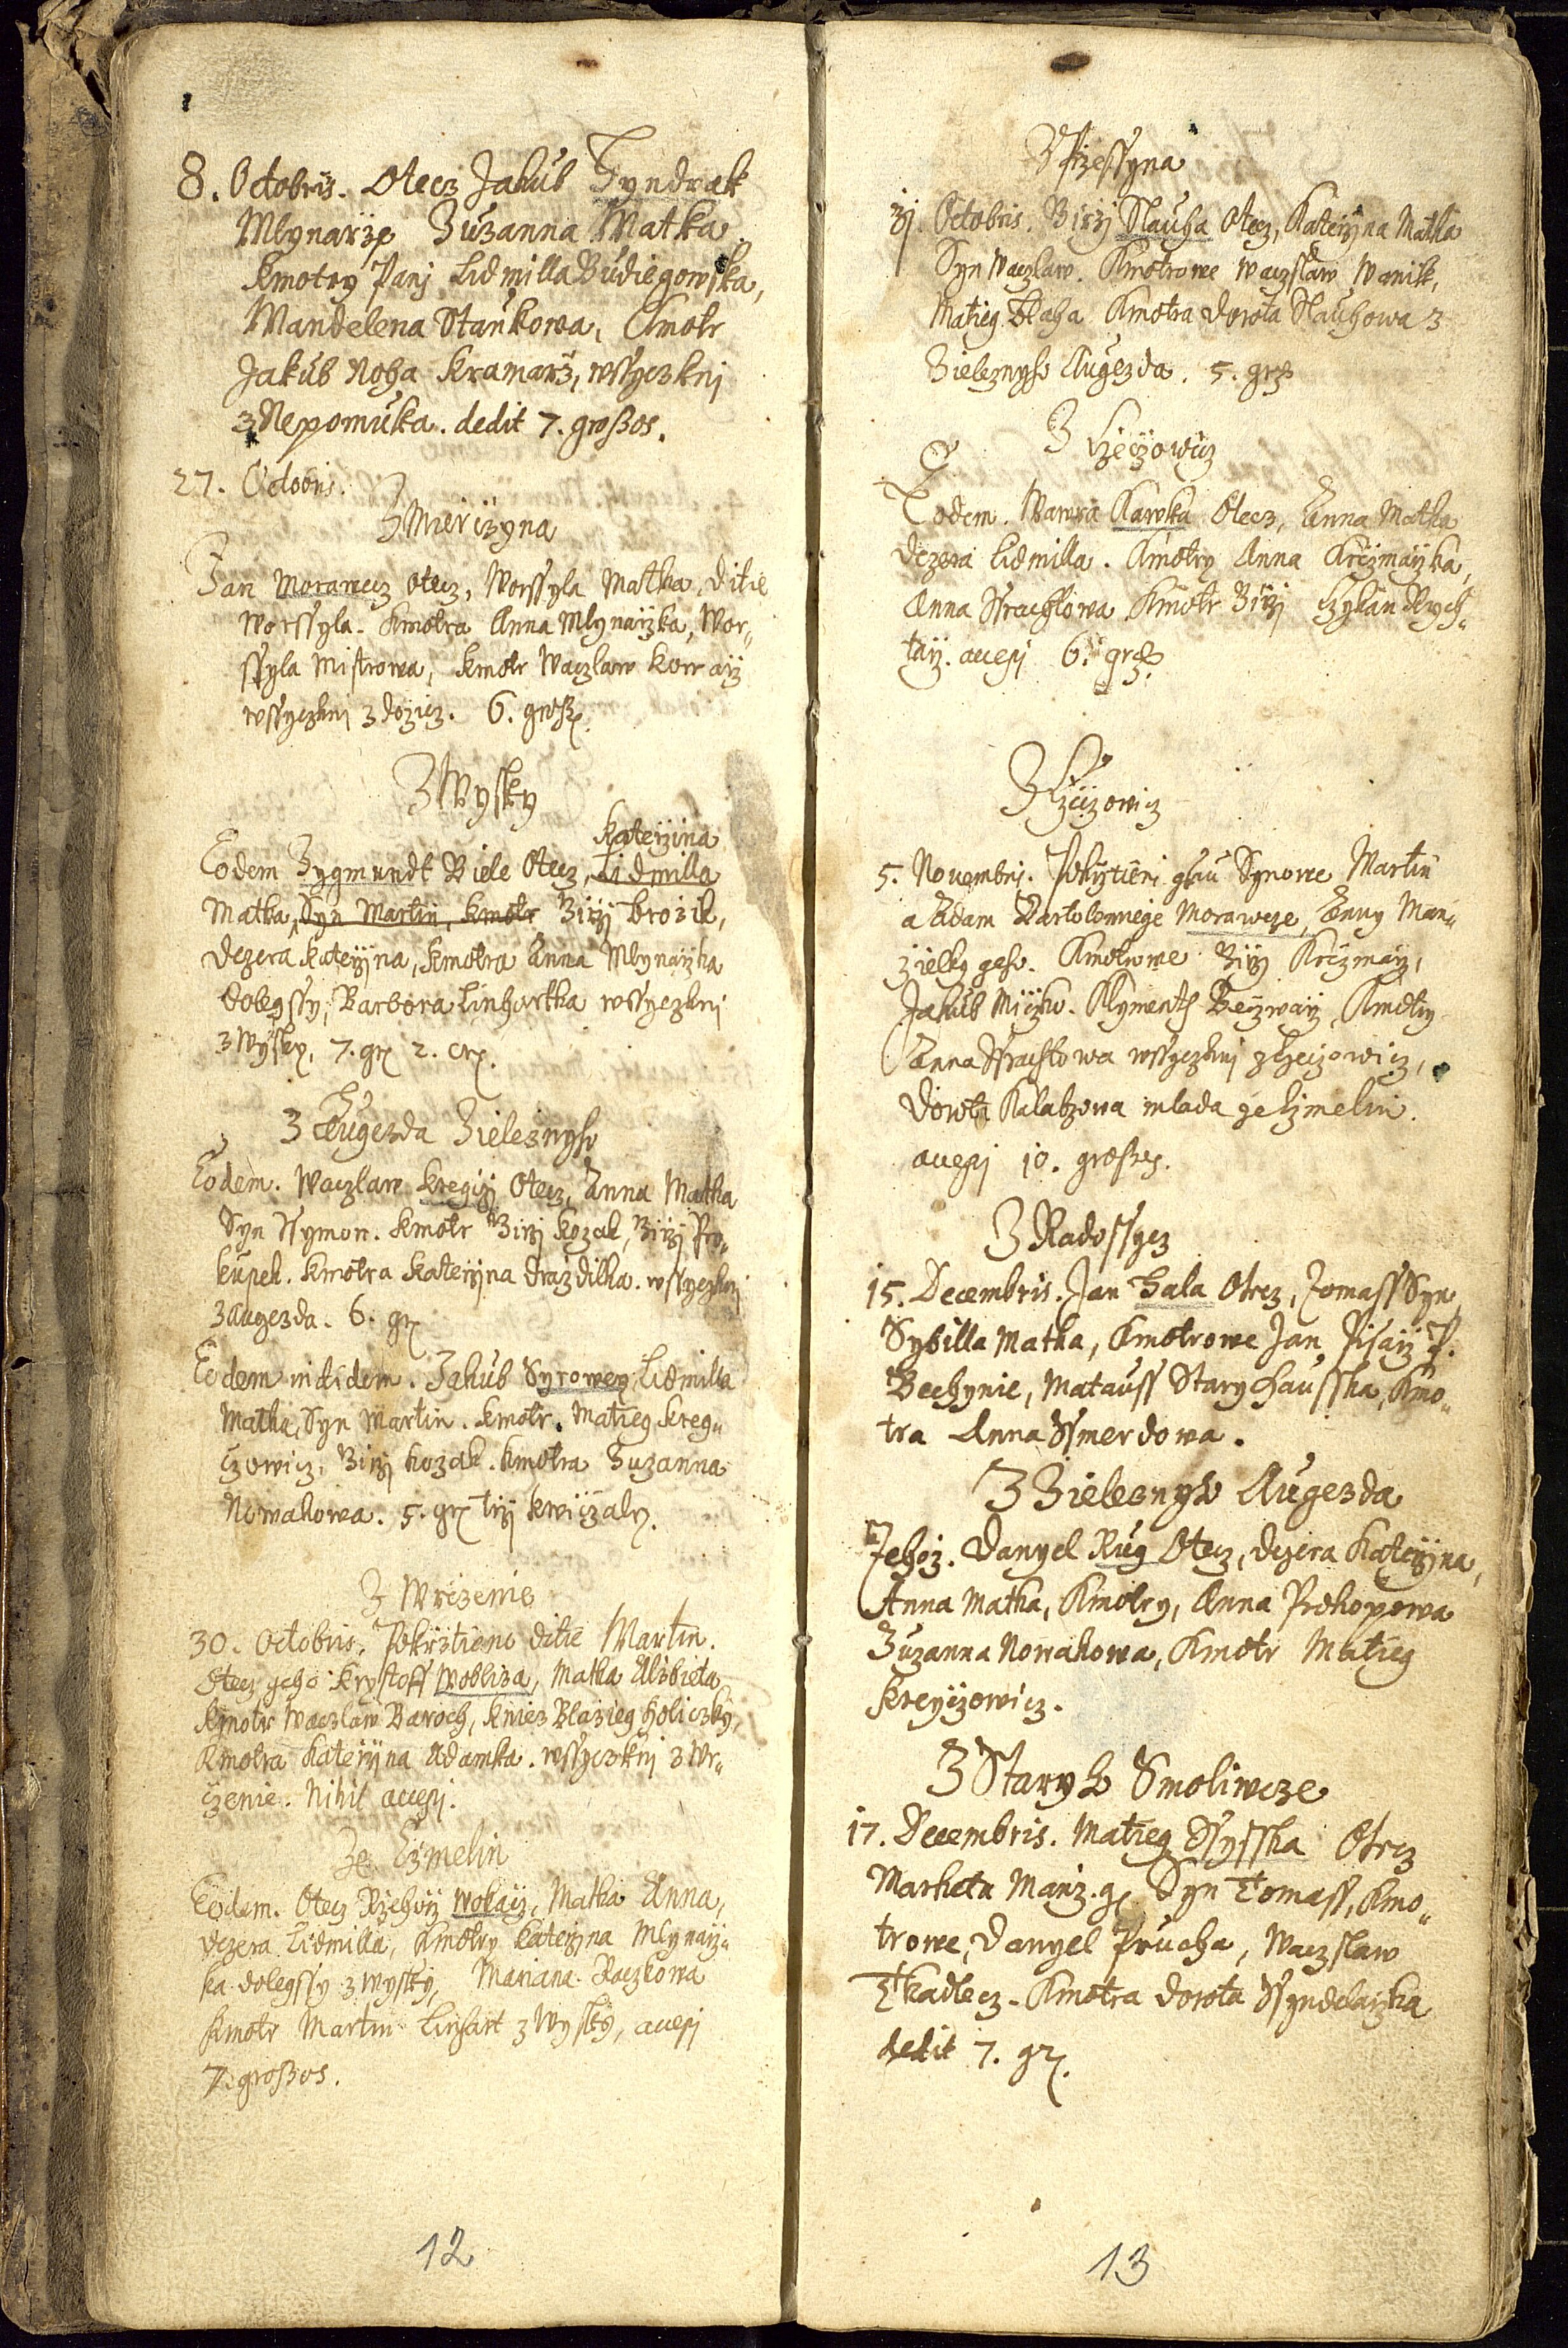 8. Octobris. Otecz Jakub Tyndrak
Mlynarzp Zuzanna Matka
Kmotry Panj Lidmilla Budiegowska,
Mandelena Stankowa, Kmotr
Jakub Noha Kramarz, wssyczknj
z Nepomuka. dedit 7. großos.
27. Octobris.
Z Mierczyna
Jan Morawecz otecz, Worssyla Matka, Ditie
Worssyla. Kmotra Anna Mlynarzka, Wor„
ssyla Mistrowa, Kmotr Waczlaw
wssyczknj z 6. groß.
Z Wysky
Katerzina
Eodem Zygmundt Biele Otecz, Lidmilla
Matka, Syn Martin, Kmotr Birzj Brozik,
Dczera Katerzyna, Kmotra Anna Mlynarzka
Dolegssy, Barbora Linhartka wssyczknj
z Wysky, 7. gr 2. cr.
Z Augezda Zieleznyho
Eodem. Waczlaw Kregczj Otecz, Anna Matka
Syn Ssymon. Kmotr Birzj Kozak, Birzj Pro„
kupek. Kmotra Katerzyna Drazdilka. wssyczknj
z Augezda. 6. gr
Eodem indidem. Jakub Syrowey, Lidmilla
Matka, Syn Martin. Kmotr. Matieg Kreg„
czowicz, Birzj Kozak. Kmotra Zuzanna
Nowakowa. 5. gr trzj
Z Wrczenie
30. Octobris. Pokrztieno ditie Martin.
Otecz geho Krystoff Wobliza, Matka Alzbieta
Kmotr Waczlaw Baroch, Kniez Blazieg Holiczky,
Kmotra Katerzyna Adamka. wssyczknj z Wr„
czenie. Nihil accepj.
Ze Czmelin
Eodem. Otecz Rzehorz Wokacz, Matka Anna,
Dczera Lidmilla, Kmotry Katerzyna Mlynarz„
ka dolegssy z Wysky, Mariana Raczkowa
Kmotr Martin Linhart z Wysky, accepj
7. großos.
12
Z Przessyna
3j. Octobris. Birzj Slauha Otecz, Katerzyna Matka
Syn Waczlaw. Kmotrowe Waczslaw Wanik,
Matieg Blaha Kmotra Dorota Slauhowa z
Zieleznyho Augezda. 5. grß
Z Czeczowicz
Eodem. Wawra Kawka Otecz, Anna Matka
Dczera Lidmilla. Kmotry Anna Krczmarzka,
Anna Strachlowa Kmotr Birzj Rych„
tarz. accepj 6. grß.
Z Czeczowicz
5. Nouembrj. Pokrztieni gsau Synowe Martin
a Adam Bartolomnege Morawcze, Anny Man„
zielky geho. Kmotrowe Birzj Krczmarz,
Jakub Kmotry
Anna Strachlowa wssyczknj z Czeczowicz,
Dorota Kalabzowa mlada ze Czmelin.
accepj j0. großes.
Z Radossycz
j5. Decembris. Jan Hala Otecz, Tomass Syn,
Sybilla Matka, Kmotrowe Jan Pisarz P.
Bechynie, Matauss Stary Hausska, Kmo„
tra Anna Ssmerdowa.
Z Zieleznyho Augezda
Tehoz. Danyel Rug Otecz, Dczera Katerzyna,
Anna Matka, Kmotry, Anna Prokopowa
Zuzanna Nowakowa, Kmotr Matieg
Kreyczowicz.
Z Staryho Smoliwcze
j7. Decembris. Matieg Ssysska Otecz
Marketa Manz. ge Syn Tomass, Kmo„
trowe, Danyel Prucha, Waczslaw
Tkadlecz. Kmotra Dorota Ssyndelarzka
dedit 7. gr.
13